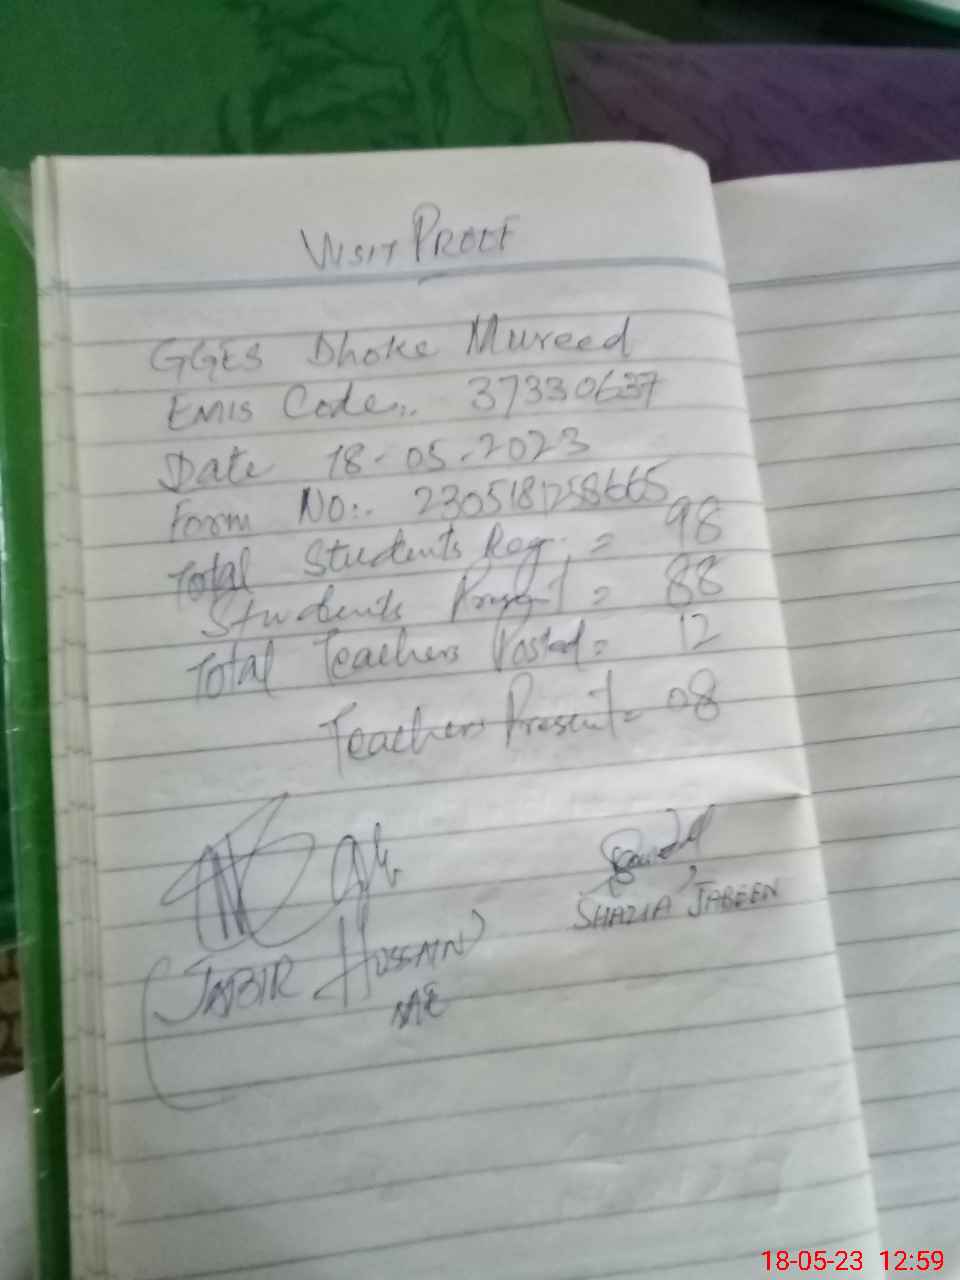 VISIT PROOF
GGES Dhoke Mureed
EMIS Code:. 37330637
Date 18-05-2023
Form NO:. 2305181258665
Total Students Reg. = 98
Students Present = 88
Total Teachers Posted = 12
Teachers Present = 08
SHAZIA JABEEN
(JABIR HUSSAIN)
18-05-23 12:59